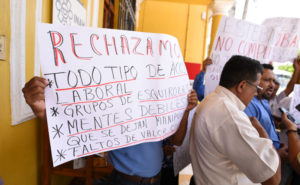 RECHAZAMO
TODO TIPO DE AC
LABORAL
* GRUPOS DE ESQUIROLE
* MENTES DEBILES
QUE SE DEJAN MANIPU
* FALTOS DE VALOR
NO COMP